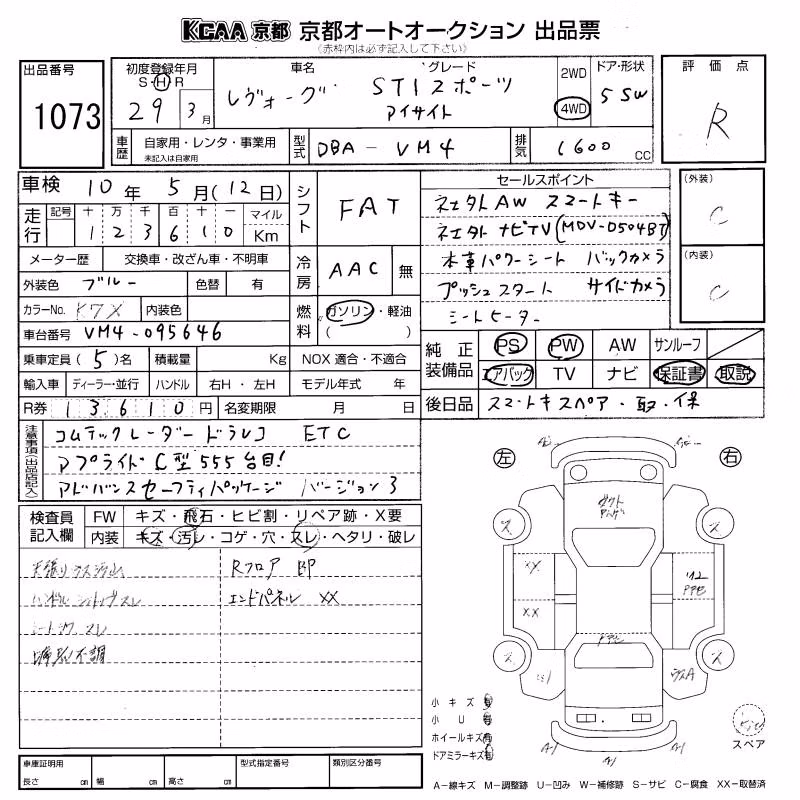 KCAA 京都 京都オートオークション 出品票
(赤枠内は必ず記入して下さい)
出品番号
1073
初度登録年月
S・H・R
29 3月
車名
レヴォーグ
グレード
STIスポーツ
アイサイト
2WD
4WD
ドア・形状
5 SW
評価点
R
車歴
自家用・レンタ・事業用
未記入は自家用
型式
DBA-VM4
排気
1600 CC
車検
10年 5月(12日)
走行
記号 十 万 千 百 十 一 マイル
1 2 3 6 1 0 Km
シフト
FAT
セールスポイント
社外AW スマートキー
社外ナビTV(MDV-D504BT)
本革パワーシート バックカメラ
プッシュスタート サイドカメラ
シートヒーター
(外装)
C
(内装)
C
メーター歴 交換車・改ざん車・不明車
冷房
AAC 無
外装色 ブルー 色替 有
カラーNo. K7X 内装色
燃料
ガソリン・軽油
( )
車台番号 VM4-095646
乗車定員 (5)名 積載量 Kg NOX 適合・不適合
純正装備品
PS PW AW サンルーフ
エアバック TV ナビ 保証書 取説
輸入車 ディーラー・並行 ハンドル 右H・左H モデル年式 年
R券 13610円 名変期限 月 日
後日品 スマートキースペア・取・保
注意事項(出品店記入)
コムテックレーダードラレコ ETC
アプライドC型 555台目!
アドバンスセーフティパッケージ バージョン3
検査員記入欄
FW キズ・飛石・ヒビ割・リペア跡・X要
内装 キズ・汚レ・コゲ・穴・スレ・ヘタリ・破レ
Rフロア 凹
エンドパネル XX
ハンドル シフトノブスレ
左 右
XX
XX
小キズ 有
小U 有
ホイールキズ 有
ドアミラーキズ 有
スペア
車庫証明用
長さ cm 幅 cm 高さ cm
型式指定番号
類別区分番号
A-線キズ M-調整跡 U-凹み W-補修跡 S-サビ C-腐食 XX-取替済